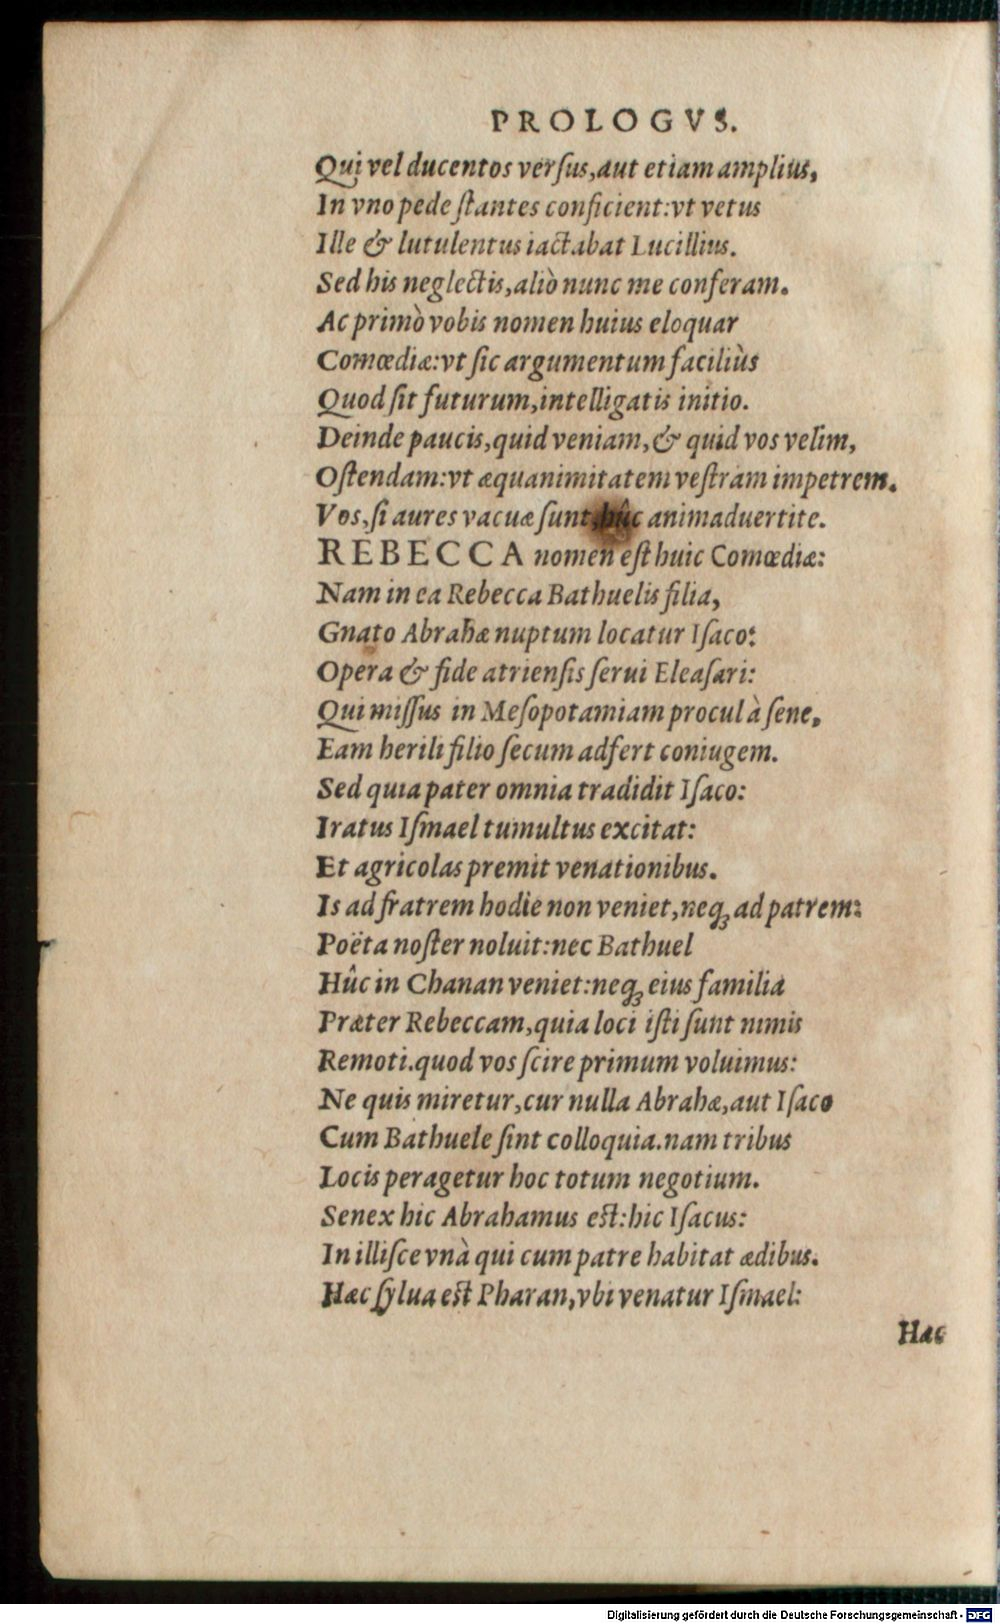 PROLOGVS.
Qui vel ducentos verſus, aut etiam amplius,
In vno pede ſtantes conficient: vt vetus
Ille & lutulentus iactabat Lucillius.
Sed his neglectis, aliò nunc me conferam.
Ac primò vobis nomen huius eloquar
Comœdiæ: vt ſic argumentum faciliùs
Quod ſit futurum, intelligatis initio.
Deinde paucis, quid veniam, & quid vos velim,
Oſtendam: vt æquanimitatem veſtram impetrem.
Vos, ſi aures vacuæ ſunt, hûc animaduertite.
REBECCA nomen eſt huic Comœdiæ:
Nam in ea Rebecca Bathuelis filia,
Gnato Abrahæ nuptum locatur Iſaco:
Opera & fide atrienſis ſerui Eleaſari:
Qui miſſus in Meſopotamiam procul à ſene,
Eam herili filio ſecum adfert coniugem.
Sed quia pater omnia tradidit Iſaco:
Iratus Iſmael tumultus excitat:
Et agricolas premit venationibus.
Is ad fratrem hodie non veniet, neq; ad patrem:
Poëta noſter noluit: nec Bathuel
Hûc in Chanan veniet: neq; eius familia
Præter Rebeccam, quia loci iſti ſunt nimis
Remoti. quod vos ſcire primum voluimus:
Ne quis miretur, cur nulla Abrahæ, aut Iſaco
Cum Bathuele ſint colloquia. nam tribus
Locis peragetur hoc totum negotium.
Senex hic Abrahamus eſt: hic Iſacus:
In illiſce vnà qui cum patre habitat ædibus.
Hæc ſylua eſt Pharan, vbi venatur Iſmael:
Hac
Digitalisierung gefördert durch die Deutsche Forschungsgemeinschaft - DFG